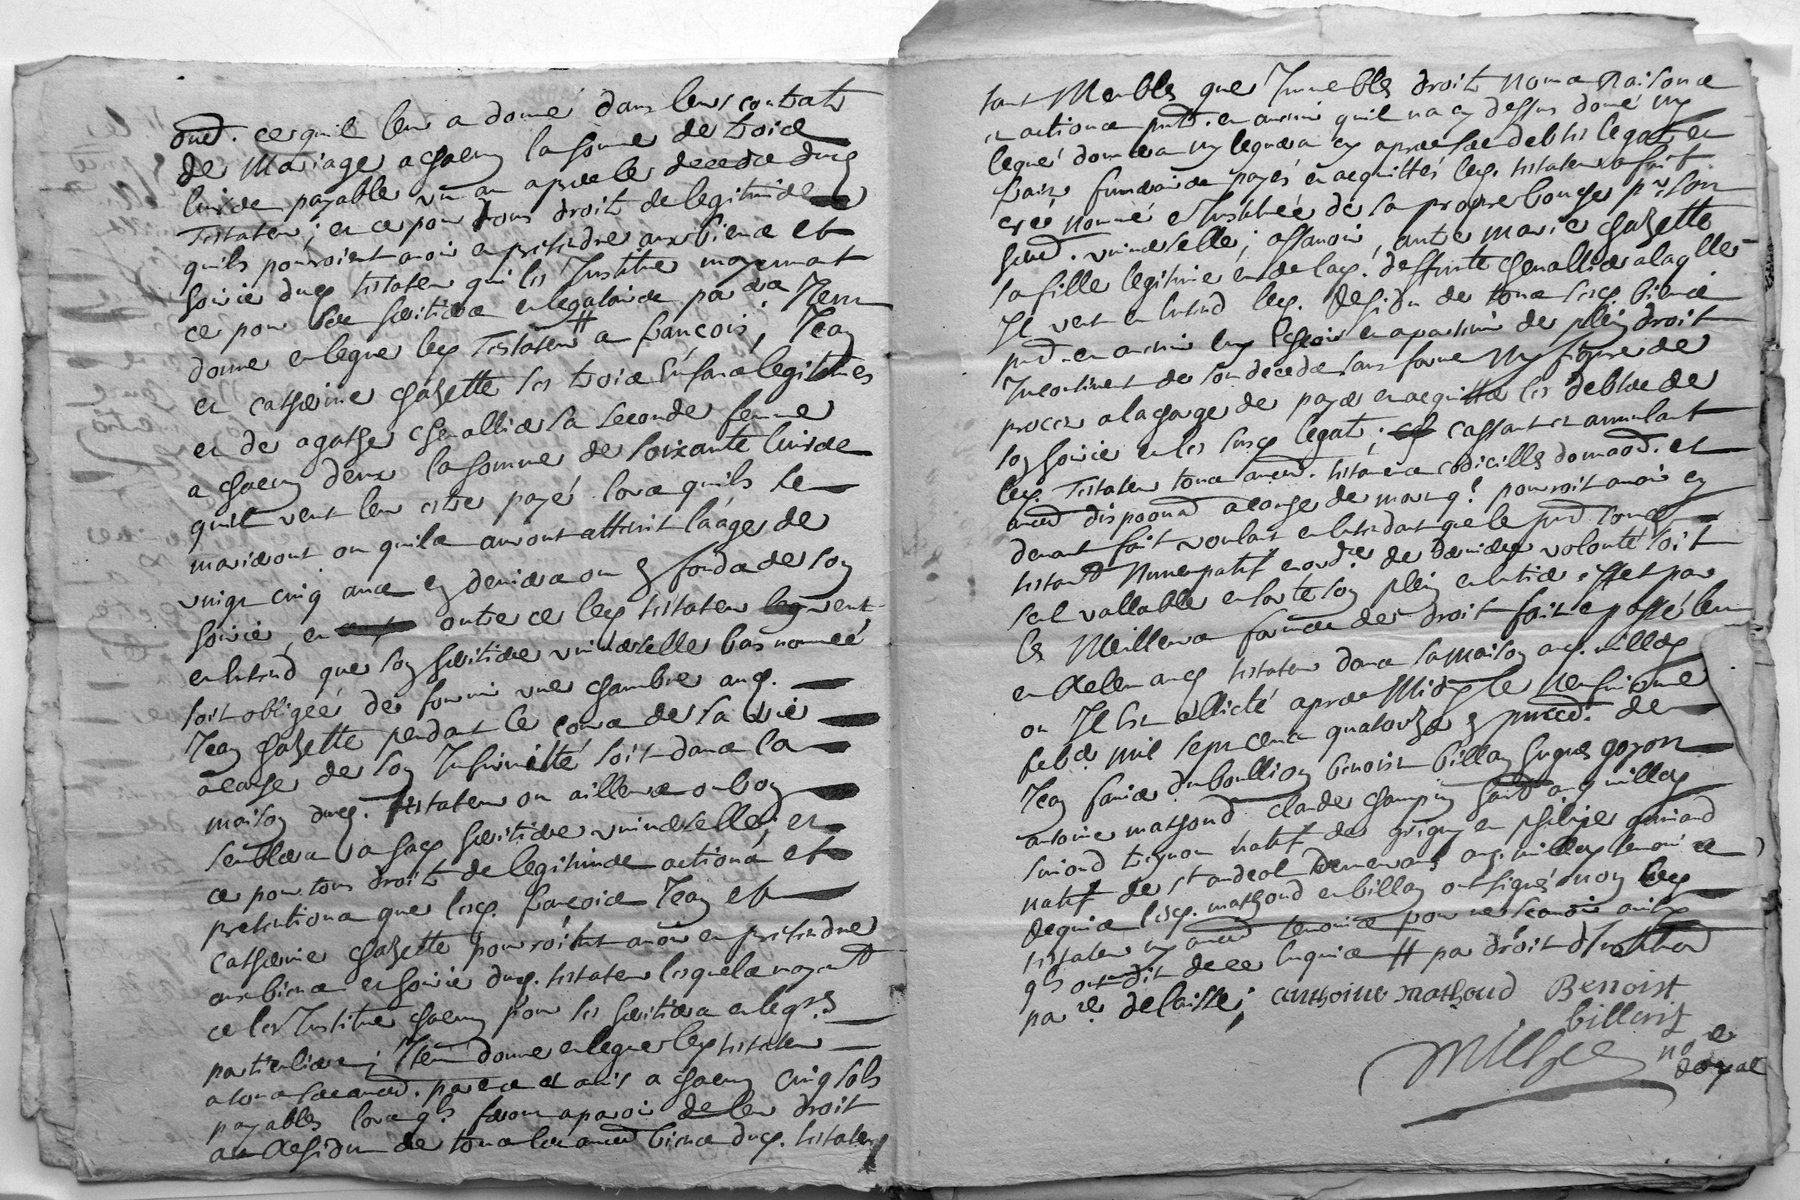 outre ce quil leur a donné dans leurs contrats
de Mariage a chacun la somme de trois
livres payable un an apres le deceds dud
testateur; et ce pour tous droits de legitimes
quils pourroient avoir et pretendre aux biens et
hoirie dud testateur qui les Institue moyennant
ce pour ses heritiers et legataires par. Item
donne et legue led testateur # a françois, Jean
et catherine chazette ses trois Enfans legitimes
et de agathe chevallier sa seconde femme
a chacun deux la somme de soixante livres
quil veut leur estre payé lors quils se
marieront ou quils auront atteint laage de
vingt cinq ans en deniers ou fonds de son
hoirie, et outre ce led testateur veut
entend que son heritiere universelle bas nommée
soit obligée de fournir une chambre aud.
Jean chazette pendant le cours de sa vie
acause de son Infirmité soit dans la
maison dud. testateur ou ailleurs ou bon
semblera a sad heritiere universelle; et
ce pour tous droits de legitimes actions et
pretentions que lesd. françois Jean et
catherine chazette pourroient avoir et pretendre
aux biens et hoirie dud. testateur lesquels moyent
ce les Institue chacun pour ses heritiers et leg.rs
particuliers; Item donne et legue led testateur
a tous ses autres parens et amis a chacun cinq sols
payables lors qls feront aparoir de leur droit
au Residu de tous les autres biens dud. testateur
tant Meubles que Immeubles droits noms Raisons
et actions pnts. et avenir quil na cy dessus donné ny
legué donnera ny leguera cy apres ses debtes legats et
frais funeraires payés et acquittés led. testateur a fait
creé nommé et Institueé de sa propre bouche pr. son
hered. universelle; assavoir, anne marie chazette
sa fille legitime et de lad. deffunte chevallier a laqlle
Il veut et entend led. Residu de tous sesd. biens
pnts. et avenir luy Escheoir et apartenir de plein droit
Incontinent de son deceds sans forme ny figure de
proces a la charge de payer et acquitter les debtes de
son hoirie et les susd legats; cassant et annulant
led. testateur tous autres. testamens codicilles donnaons. et
autres disposons acause de mort q.l pourroit avoir cy
devant fait voulant et entendant que le pnt soit
testant Nuncupatif et ordre. de derniere volonté soit
seul vallable et sorte son plein et entier effet par
les Meilleurs formes de droit fait et passé leu
et Releu aud testateur dans sa maison aud. millery
ou Il est allicté apres Midy le neufvieme
feb.er mil sept cens quatorze presents. de
Jean favier du boullion benoist billion hugues goyon
antoine mathoud claude champin habts aud millery
simond trignon natif de grigny et philipe guinand
natif de st andeol demeurants aud. millery temoins
Requis lesd. mathoud et billion ont signés non led
testateur ny autres temoins pour ne sçavoir ainsy
qls ont dit de ce Enquis # par droit d'Institution
par luy delaissé; anthoine mathoud Benoist
billion
no.re
Royal